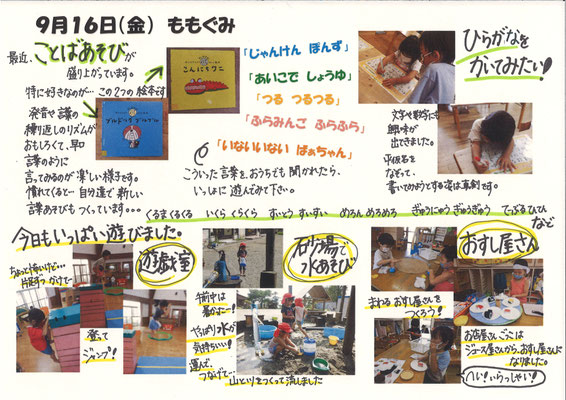 9月16日(金) ももぐみ
最近、ことばあそびが
盛り上がっています。
特に好きなのが… この2つの絵本です
発音や言葉の
繰り返しのリズムが
おもしろくて、早口
言葉のように
言ってみるのが楽しい様子です。
慣れてくると… 自分達で新しい
言葉あそびもつくっています。。。
こんにちワニ
ブルドッグブルブル
「じゃんけん ぽんず」
「あいこで しょうゆ」
「つる つるつる」
「ふらみんご ふらふら」
「いないいない ばぁちゃん」
こういった言葉を、おうちでも聞かれたら、
いっしょに遊んでみて下さい。
くるまくるくる いくらくらくら すいとうすいすい めろんめろめろ ぎゅうにゅうぎゅうぎゅう てっぷるひひ など
ひらがなを
かいてみたい!
文字や数字にも
興味が
出てきました。
平仮名を
なぞって、
書いてみようとする姿は真剣です。
今日もいっぱい遊びました。
ちょっと怖いけど…
片足ずつかけて…
登って
ジャンプ!
遊戯室
午前中は
暑かった〜!
やっぱり水が
気持ちいい!
運んで、
つなげて…
山と川をつくって流しました
砂場で
水あそび
おすし屋さん
まわるおすし屋さんを
つくろう!
お店屋さんごっこは
ジュース屋さんから、おすし屋さんに
なりました。
へい!いらっしゃい!